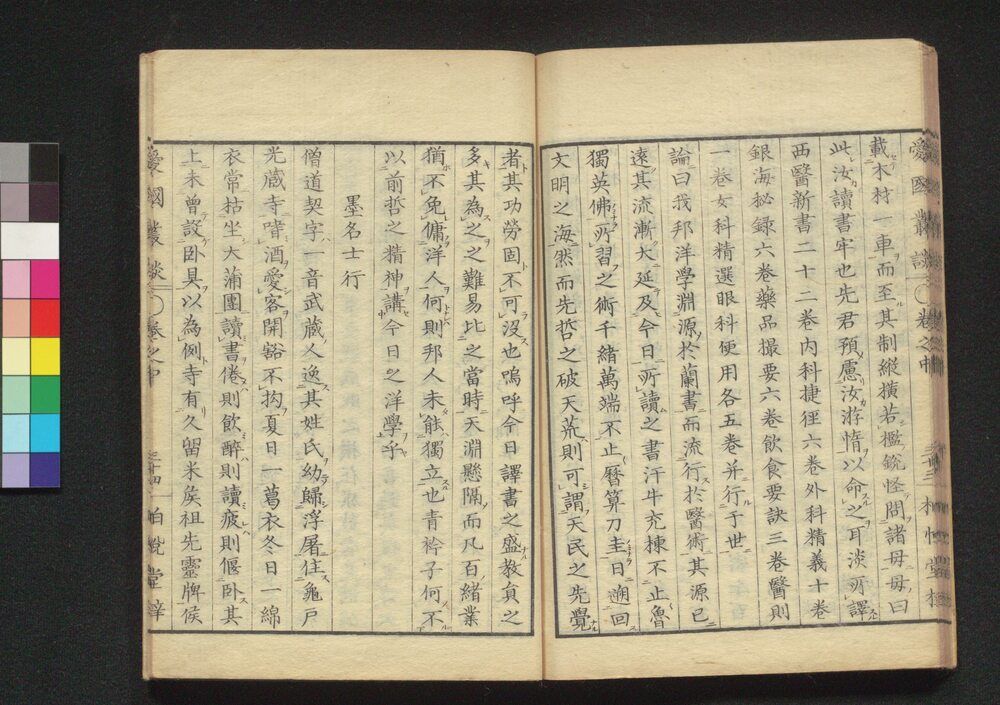 愛國叢談 卷之中
載木材一車而至其制縱横若檻銳怪問諸母母曰
此汝讀書牢也先君預慮汝游惰以命之耳淡所譯
西醫新書二十二卷内科捷徑六卷外科精義十卷
銀海秘録六卷藥品撮要六卷飲食要訣三卷醫則
一卷女科精選眼科便用各五卷并行于世
論曰我邦洋學淵源於蘭書而流行於醫術其源已
遠其流漸大延及今日所讀之書汗牛充棟不止魯
獨英佛所習之術千緒萬端不止曆算刀圭日遡回
文明之海然而先哲之破天荒則可謂天民之先覺
者其功勞固不可没也嗚呼今日譯書之盛教員之
多其為之之難易比之當時天淵懸隔而凡百緒業
猶不免傭洋人何則邦人未能獨立也青衿子何不
以前哲之精神講今日之洋學乎
墨名士行
僧道契字一音武藏人逸其姓氏幼歸浮屠住龜戸
光蔵寺嗜酒愛客開豁不拘夏日一葛衣冬日一綿
衣常枯坐大蒲團讀書倦則飲醉則讀疲則偃卧其
上未曾設卧具以為例寺有久留米矦祖先靈牌侯
愛國叢談 卷之中 之十四 柏悦堂梓